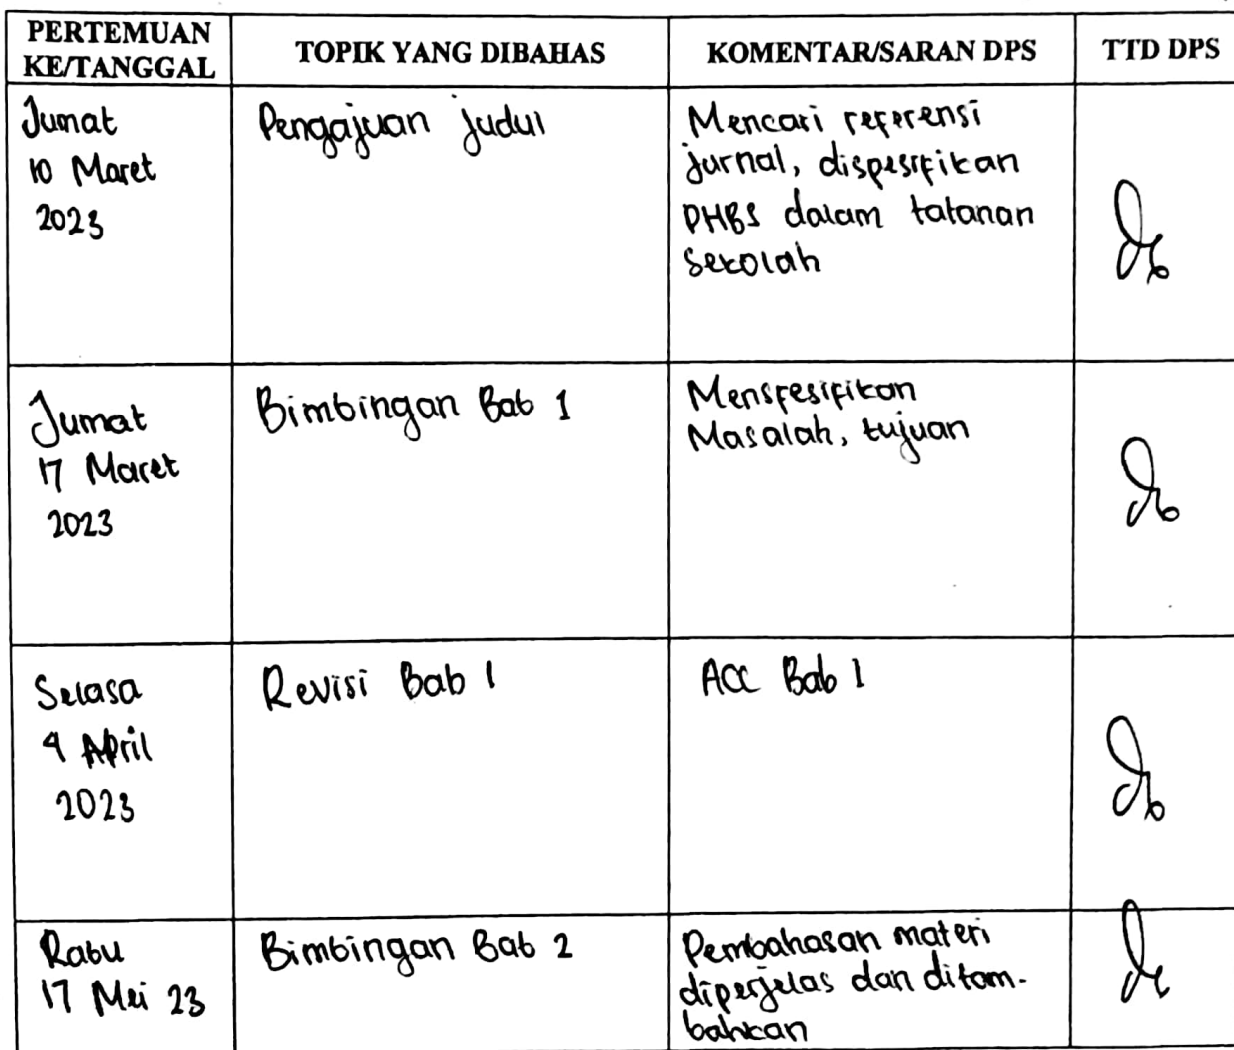 PERTEMUAN
KE/TANGGAL
TOPIK YANG DIBAHAS
KOMENTAR/SARAN DPS
TTD DPS
Jumat
10 Maret
2023
Pengajuan judul
Mencari referensi
jurnal, dispesifikan
PHBS dalam tatanan
sekolah
Jumat
17 Maret
2023
Bimbingan Bab 1
Mensfesifikan
Masalah, tujuan
Selasa
4 April
2023
Revisi Bab 1
ACC Bab 1
Rabu
17 Mei 23
Bimbingan Bab 2
Pembahasan materi
diperjelas dan ditam-
bahkan